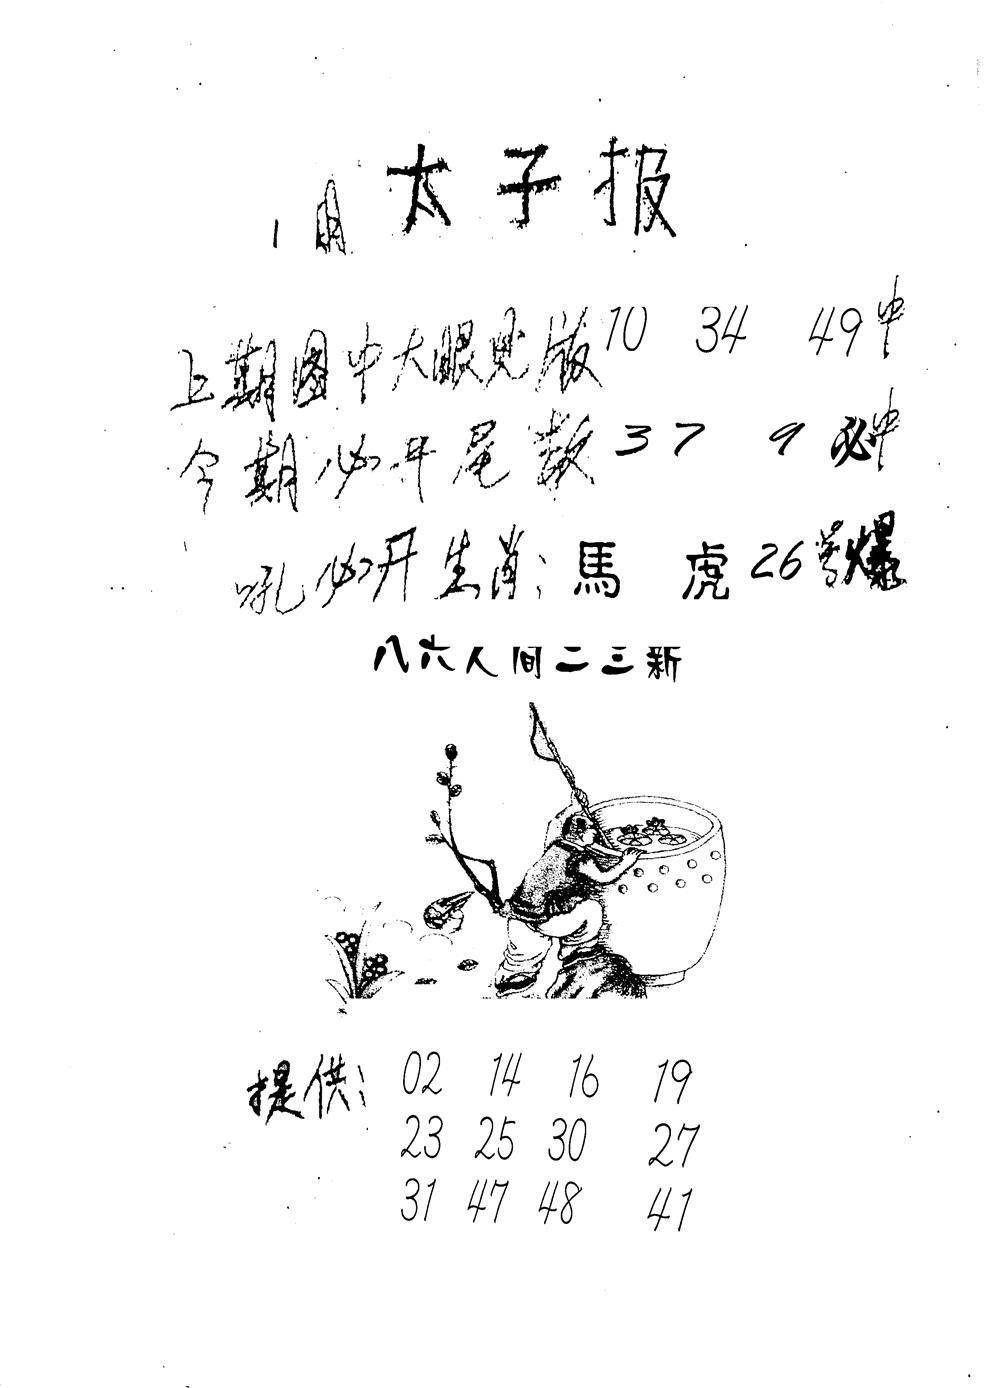 太子报
1 月
上期图中大眼见版 10 34 49 中
今期必开尾数 37 9 必中
必开生肖: 馬 虎 26 爆
八六人间二三新
提供: 02 14 16 19
23 25 30 27
31 47 48 41